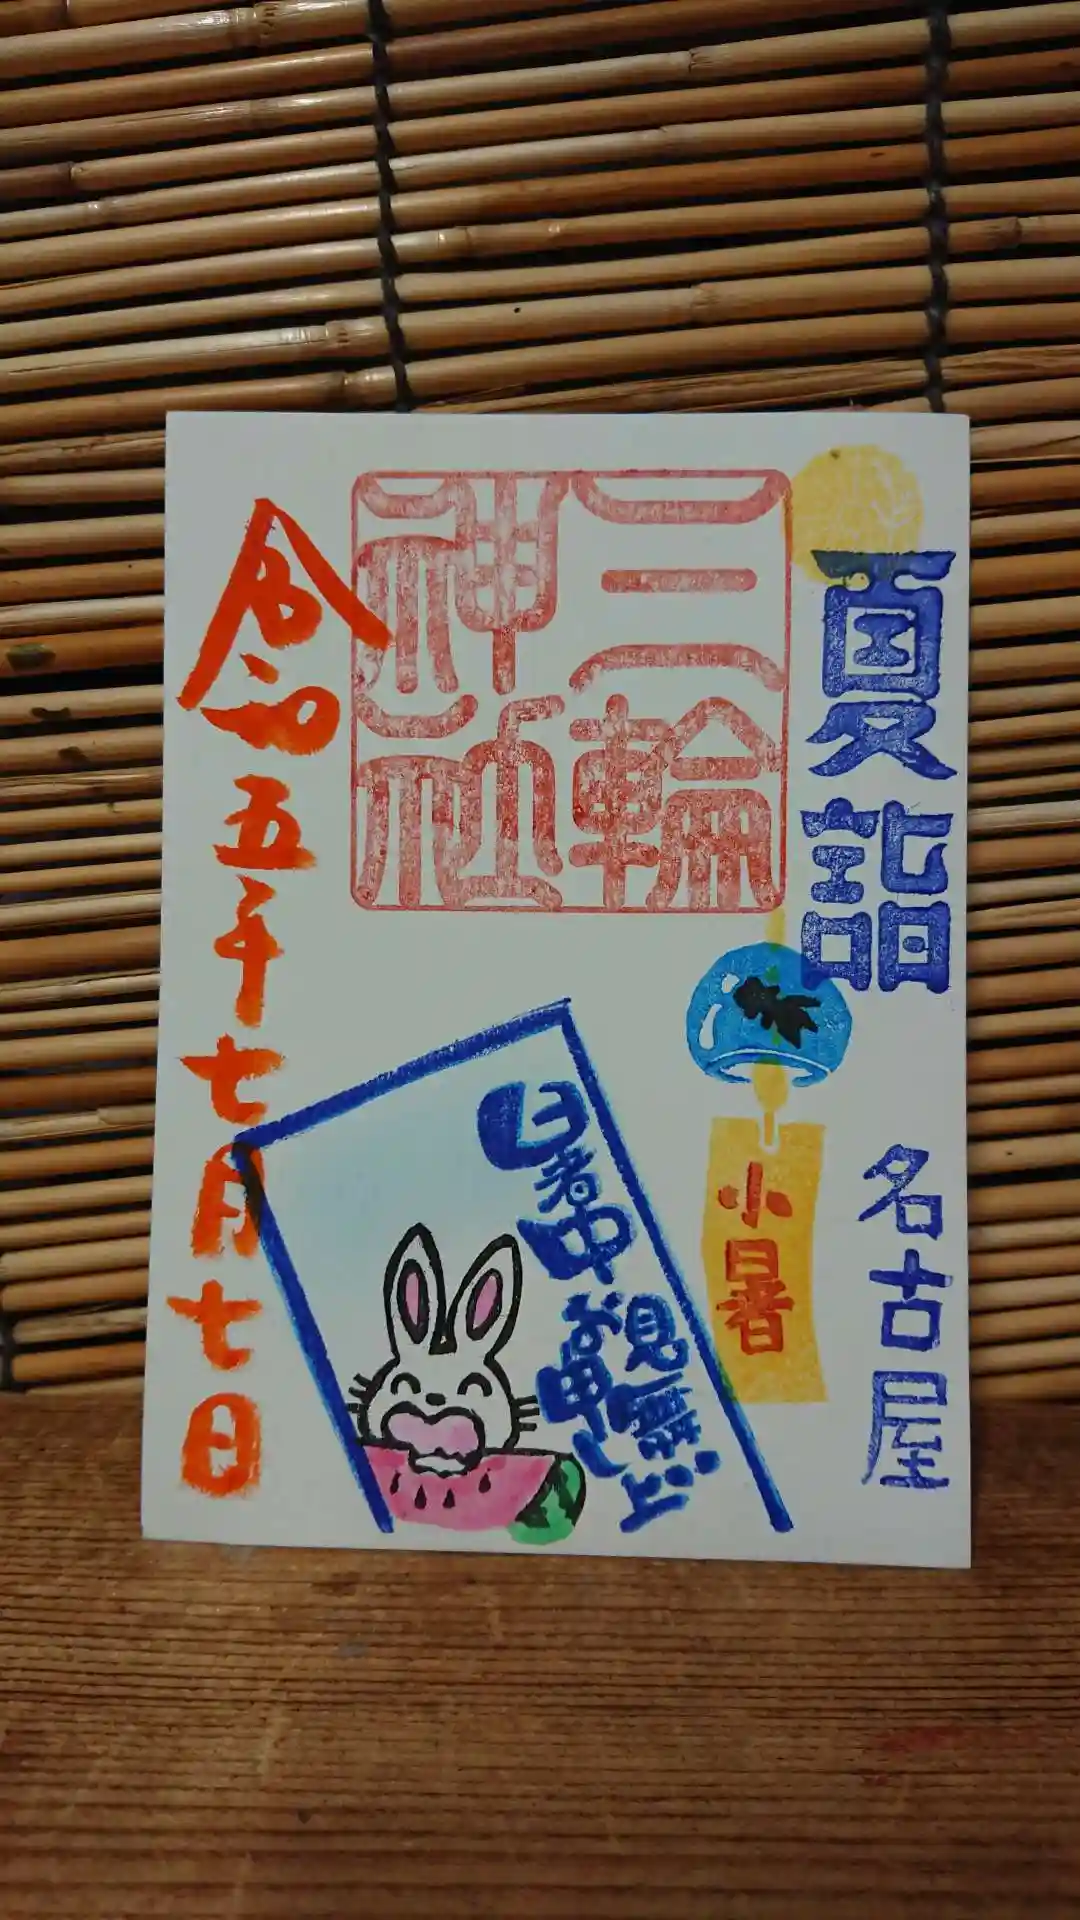 夏詣
名古屋
三輪
神社
小暑
暑中
お見舞い
申し上
令和五年七月七日